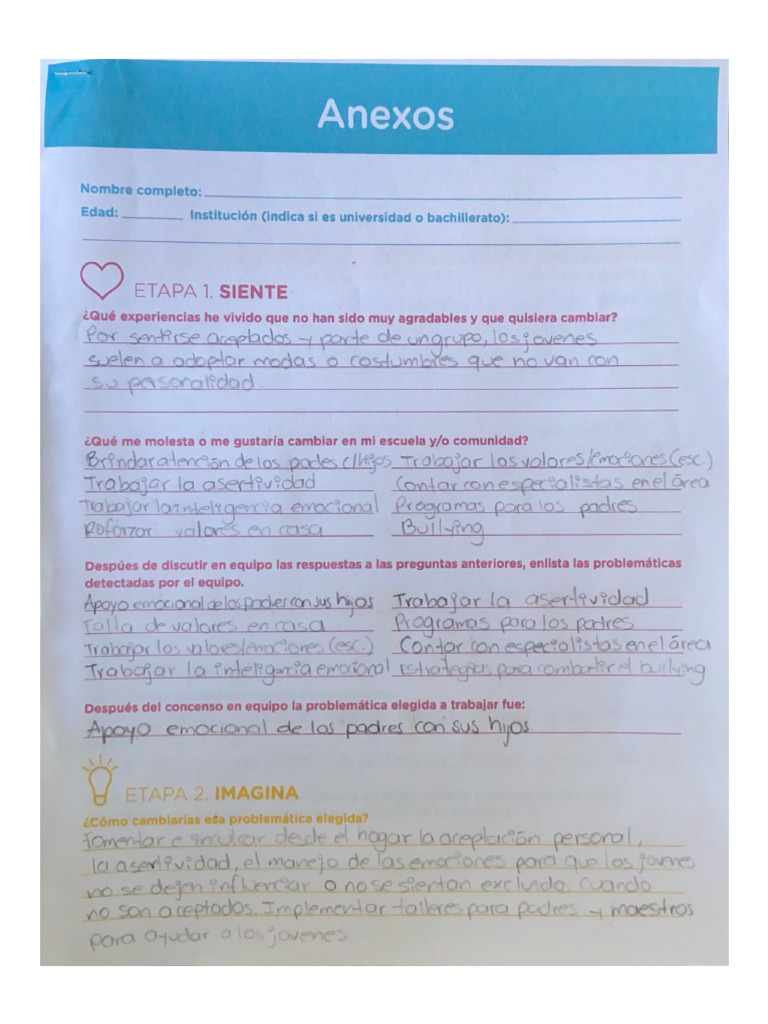 Anexos
Nombre completo:
Edad: Institución (indica si es universidad o bachillerato):
ETAPA 1. SIENTE
¿Qué experiencias he vivido que no han sido muy agradables y que quisiera cambiar?
Por sentirse aceptados y parte de un grupo, los jovenes
suelen a adoptar modas o costumbres que no van con
su personalidad.
¿Qué me molesta o me gustaría cambiar en mi escuela y/o comunidad?
Brindar atención de los padres c/hijos Trabajar los valores/emociones (esc.)
Trabajar la asertividad Contar con especialistas en el área
Trabajar la inteligencia emocional Programas para los padres
Reforzar valores en casa Bullying
Despúes de discutir en equipo las respuestas a las preguntas anteriores, enlista las problemáticas
detectadas por el equipo.
Apoyo emocional de los padres con sus hijos Trabajar la asertividad
Falta de valores en casa Programas para los padres
Trabajar los valores/emociones (esc.) Contar con especialistas en el área
Trabajar la inteligencia emocional Estrategias para combatir el bullying
Después del concenso en equipo la problemática elegida a trabajar fue:
Apoyo emocional de los padres con sus hijos
ETAPA 2. IMAGINA
¿Cómo cambiarías esa problemática elegida?
Fomentar e inculcar desde el hogar la aceptación personal,
la asertividad, el manejo de las emociones para que los jovenes
no se dejen influenciar o no se sientan excluido cuando
no son aceptados. Implementar talleres para padres y maestros
para ayudar a los jovenes